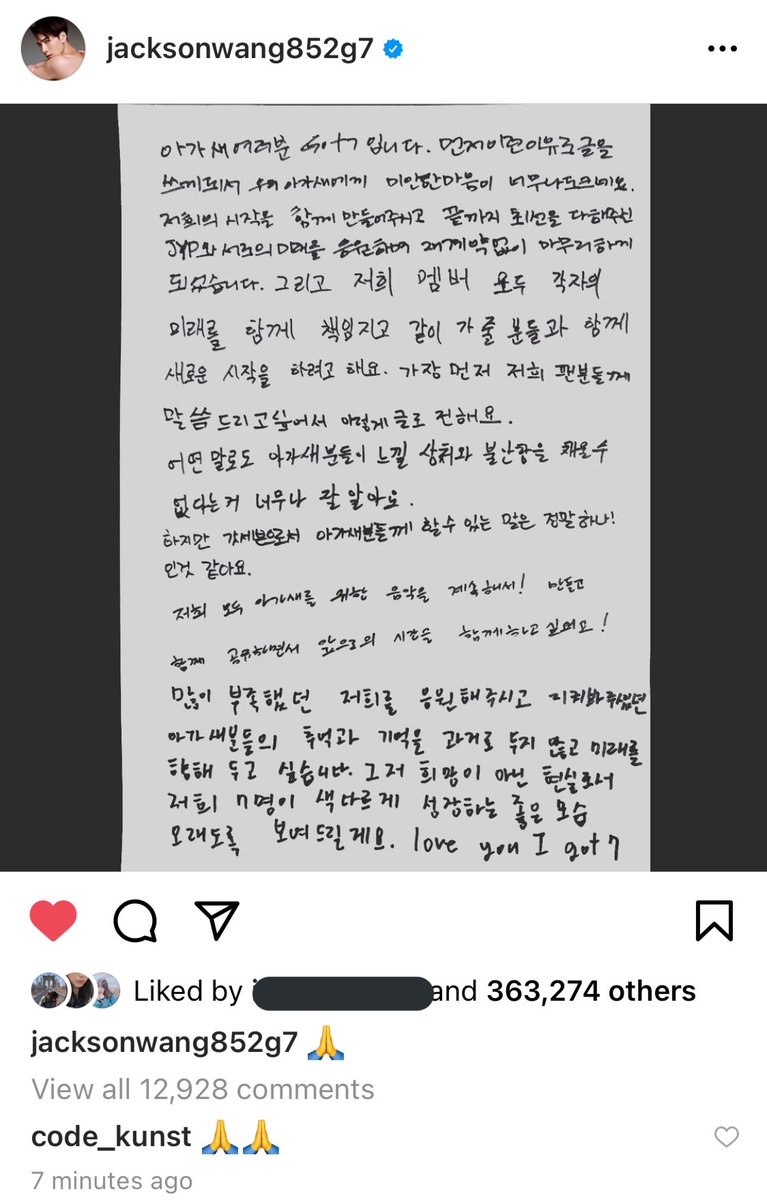 jacksonwang852g7
아가새 여러분 Got7 입니다. 먼저 이런이유로 글을
쓰게되서 우리 아가새에게 미안한마음이 너무나도크네요.
저희의 시작을 함께 만들어주시고 끝까지 최선을 다해주신
JYP와 서로의 미래를 응원하며 재계약없이 마무리하게
되었습니다. 그리고 저희 멤버 모두 각자의
미래를 함께 책임지고 같이 가줄 분들과 함께
새로운 시작을 하려고 해요. 가장 먼저 저희 팬분들께
말씀드리고싶어서 이렇게 글로 전해요.
어떤 말로도 아가새분들이 느낄 상처와 불안함을 채울수
없다는거 너무나 잘 알아요.
하지만 갓세븐으로서 아가새분들께 할수 있는 말은 정말하나!
인것 같아요.
저희 모두 아가새를 위한 음악을 계속해서! 만들고
함께 공유하면서 앞으로의 시간을 함께하고 싶어요!
많이 부족했던 저희를 응원해주시고 지켜봐주셨던
아가새분들의 추억과 기억을 과거로 두지 않고 미래를
향해 두고 싶습니다. 그저 희망이 아닌 현실로서
저희 7명이 색다르게 성장하는 좋은 모습
오래도록 보여드릴게요. love you I got7
Liked by and 363,274 others
jacksonwang852g7 🙏
View all 12,928 comments
code_kunst 🙏🙏
7 minutes ago